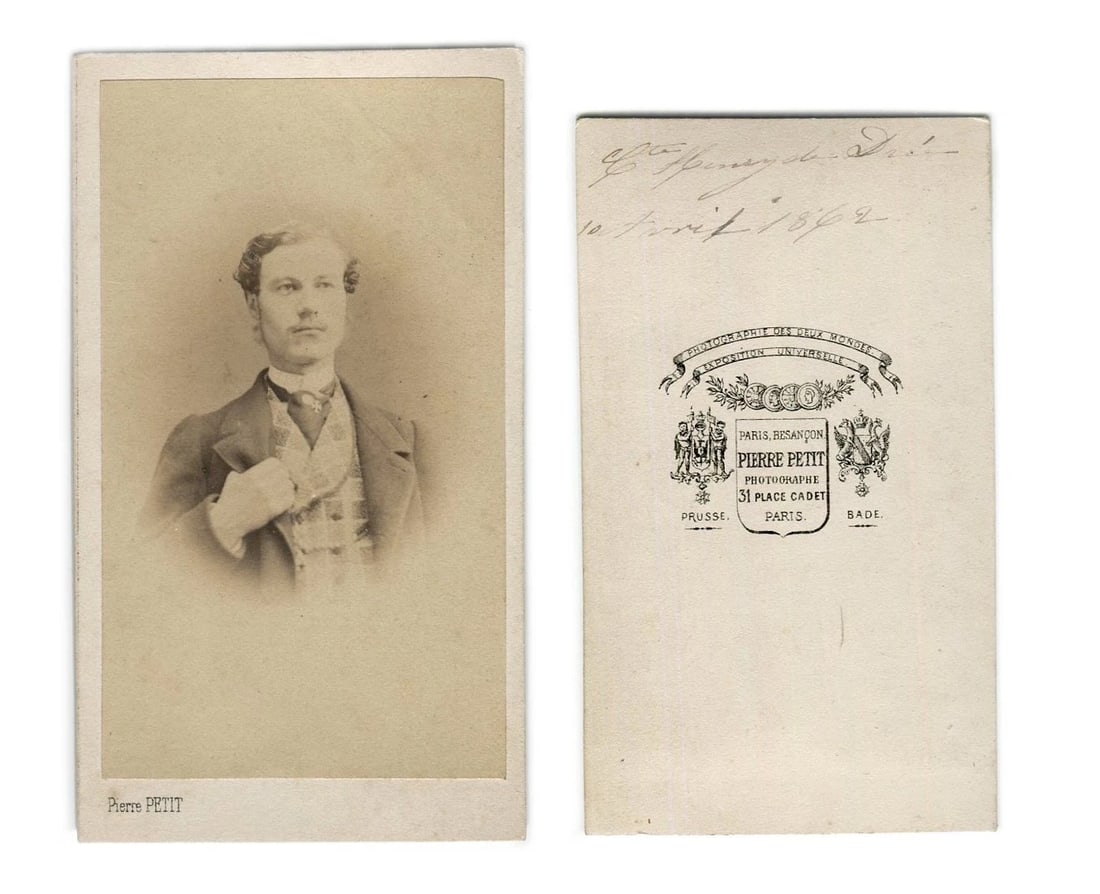 Pierre PETIT
Cte Henry de
10 Avril 1862
PHOTOGRAPHIE DES DEUX MONDES.
EXPOSITION UNIVERSELLE
PARIS, BESANÇON.
PIERRE PETIT
PHOTOGRAPHE
31 PLACE CADET
PARIS.
PRUSSE.
BADE.